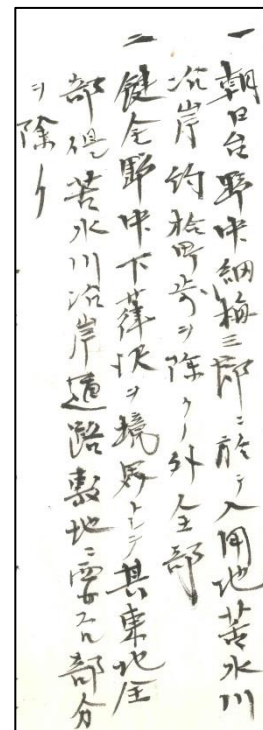 一 朝日台野中細梅三郎ニ於テ入用地苦水川
沿岸約拾町歩ヲ除クノ外全部
二 健全野中下葎沢ヲ境界トシテ其東地全
部但苦水川沿岸道路敷地ニ要スル部分
ヲ除ク